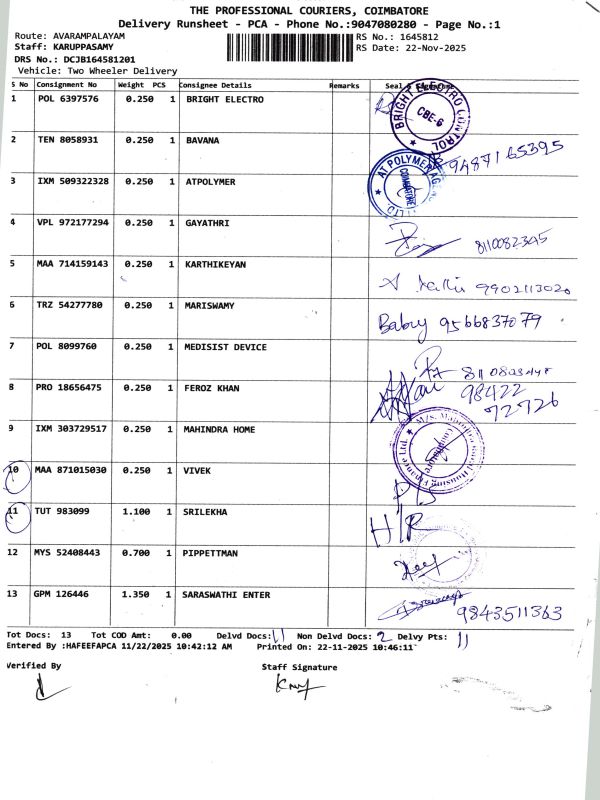 THE PROFESSIONAL COURIERS, COIMBATORE
Delivery Runsheet - PCA - Phone No.:9047080280 - Page No.:1
Route: AVARAMPALAYAM
Staff: KARUPPASAMY
DRS No.: DCJB164581201
Vehicle: Two Wheeler Delivery
RS No.: 1645812
RS Date: 22-Nov-2025
S No Consignment No Weight PCS Consignee Details Remarks Seal & Signature
1 POL 6397576 0.250 1 BRIGHT ELECTRO
BRIGHT ELECTRO CONTROL
CBE-6
2 TEN 8058931 0.250 1 BAVANA 9487165395
3 IXM 509322328 0.250 1 ATPOLYMER
AT POLYMER
COIMBATORE
4 VPL 972177294 0.250 1 GAYATHRI 8110082345
5 MAA 714159143 0.250 1 KARTHIKEYAN 9902113020
6 TRZ 54277780 0.250 1 MARISWAMY Baby 9566837079
7 POL 8099760 0.250 1 MEDISIST DEVICE
8 PRO 18656475 0.250 1 FEROZ KHAN 98422
72726
9 IXM 303729517 0.250 1 MAHINDRA HOME
Housing Finance Ltd.
10 MAA 871015030 0.250 1 VIVEK
11 TUT 983099 1.100 1 SRILEKHA
12 MYS 52408443 0.700 1 PIPPETTMAN
13 GPM 126446 1.350 1 SARASWATHI ENTER 9843511363
Tot Docs: 13 Tot COD Amt: 0.00 Delvd Docs: 11 Non Delvd Docs: 2 Delvy Pts: 11
Entered By :HAFEEFAPCA 11/22/2025 10:42:12 AM Printed On: 22-11-2025 10:46:11
Verified By Staff Signature